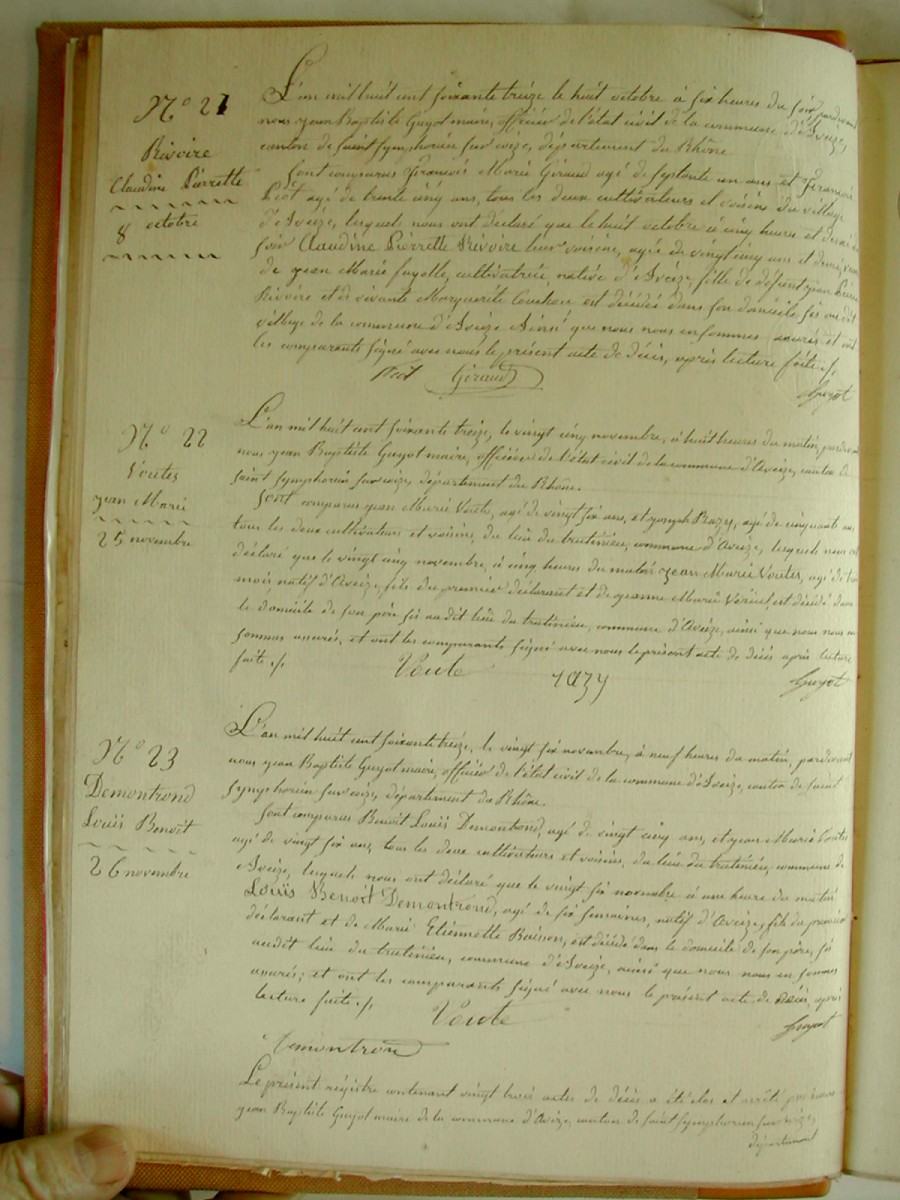 N° 21
Rivoire
Claudine Pierrette
8 octobre
L'an mil huit cent soixante treize le huit octobre à six heures du soir, pardevant
nous jean Baptiste Guyot maire, officier de l'état civil de la commune d'Aveize,
canton de Saint Symphorien sur coize, département du Rhône
Sont comparus François Marie Giraud agé de septante un ans et François
agé de trente cinq ans, tous les deux cultivateurs et voisins du village
d'Aveize, lesquels nous ont déclaré que le huit octobre à cinq heures et demie du
soir Claudine Pierrette Rivoire leur voisine, agée de vingt cinq ans et demi,
de jean Marie fayolle, cultivatrice native d'Aveize, fille de défunt jean Pierre
Rivoire et de vivante Marguerite est décédée dans son domicile sis au dit
village de la commune d'Aveize Ainsi que nous nous en sommes assurés et ont
les comparants signé avec nous le présent acte de décès, après lecture faite ./.
Giraud
Guyot
N° 22
Voutes
jean Marie
25 novembre
L'an mil huit cent soixante treize, le vingt cinq novembre, à huit heures du matin, pardevant
nous jean Baptiste Guyot maire, officier de l'état civil de la commune d'Aveize, canton de
Saint Symphorien sur coize, département du Rhône.
Sont comparus jean Marie Voute, agé de vingt six ans, et joseph agé de cinquante ans
tous les deux cultivateurs et voisins, du lieu du commune d'Aveize, lesquels nous ont
déclaré que le vingt cinq novembre, à cinq heures du matin jean Marie Voutes, agé de
mois, natif d'Aveize, fils du premier déclarant et de jeanne Marie est décédé dans
le domicile de son père sis au dit lieu du commune d'Aveize, ainsi que nous nous en
sommes assurés, et ont les comparants signé avec nous le présent acte de décès après lecture
faite ./.
Voute
Guyot
N° 23
Demontrond
Louis Benoit
26 novembre
L'an mil huit cent soixante treize, le vingt six novembre, à neuf heures du matin, pardevant
nous jean Baptiste Guyot maire, officier de l'état civil de la commune d'Aveize, canton de Saint
Symphorien sur coize, département du Rhône.
Sont comparus Benoit Louis Demontrond, agé de vingt cinq ans, et jean Marie Voutes
agé de vingt six ans, tous les deux cultivateurs et voisins, du lieu du commune de
Aveize, lesquels nous ont déclaré que le vingt six novembre à une heure du matin
Louis Benoit Demontrond, agé de six semaines, natif d'Aveize, fils du premier
déclarant et de Marie Etiennette est décédé dans le domicile de son père, sis
audit lieu du commune d'Aveize, ainsi que nous nous en sommes
assurés; et ont les comparants signé avec nous le présent acte de décès, après
lecture faite ./.
Voute
Guyot
Demontrond
Le présent registre contenant vingt trois actes de décès a été clos et arrêté par nous
jean Baptiste Guyot maire de la commune d'Aveize, canton de Saint Symphorien sur coize,
département